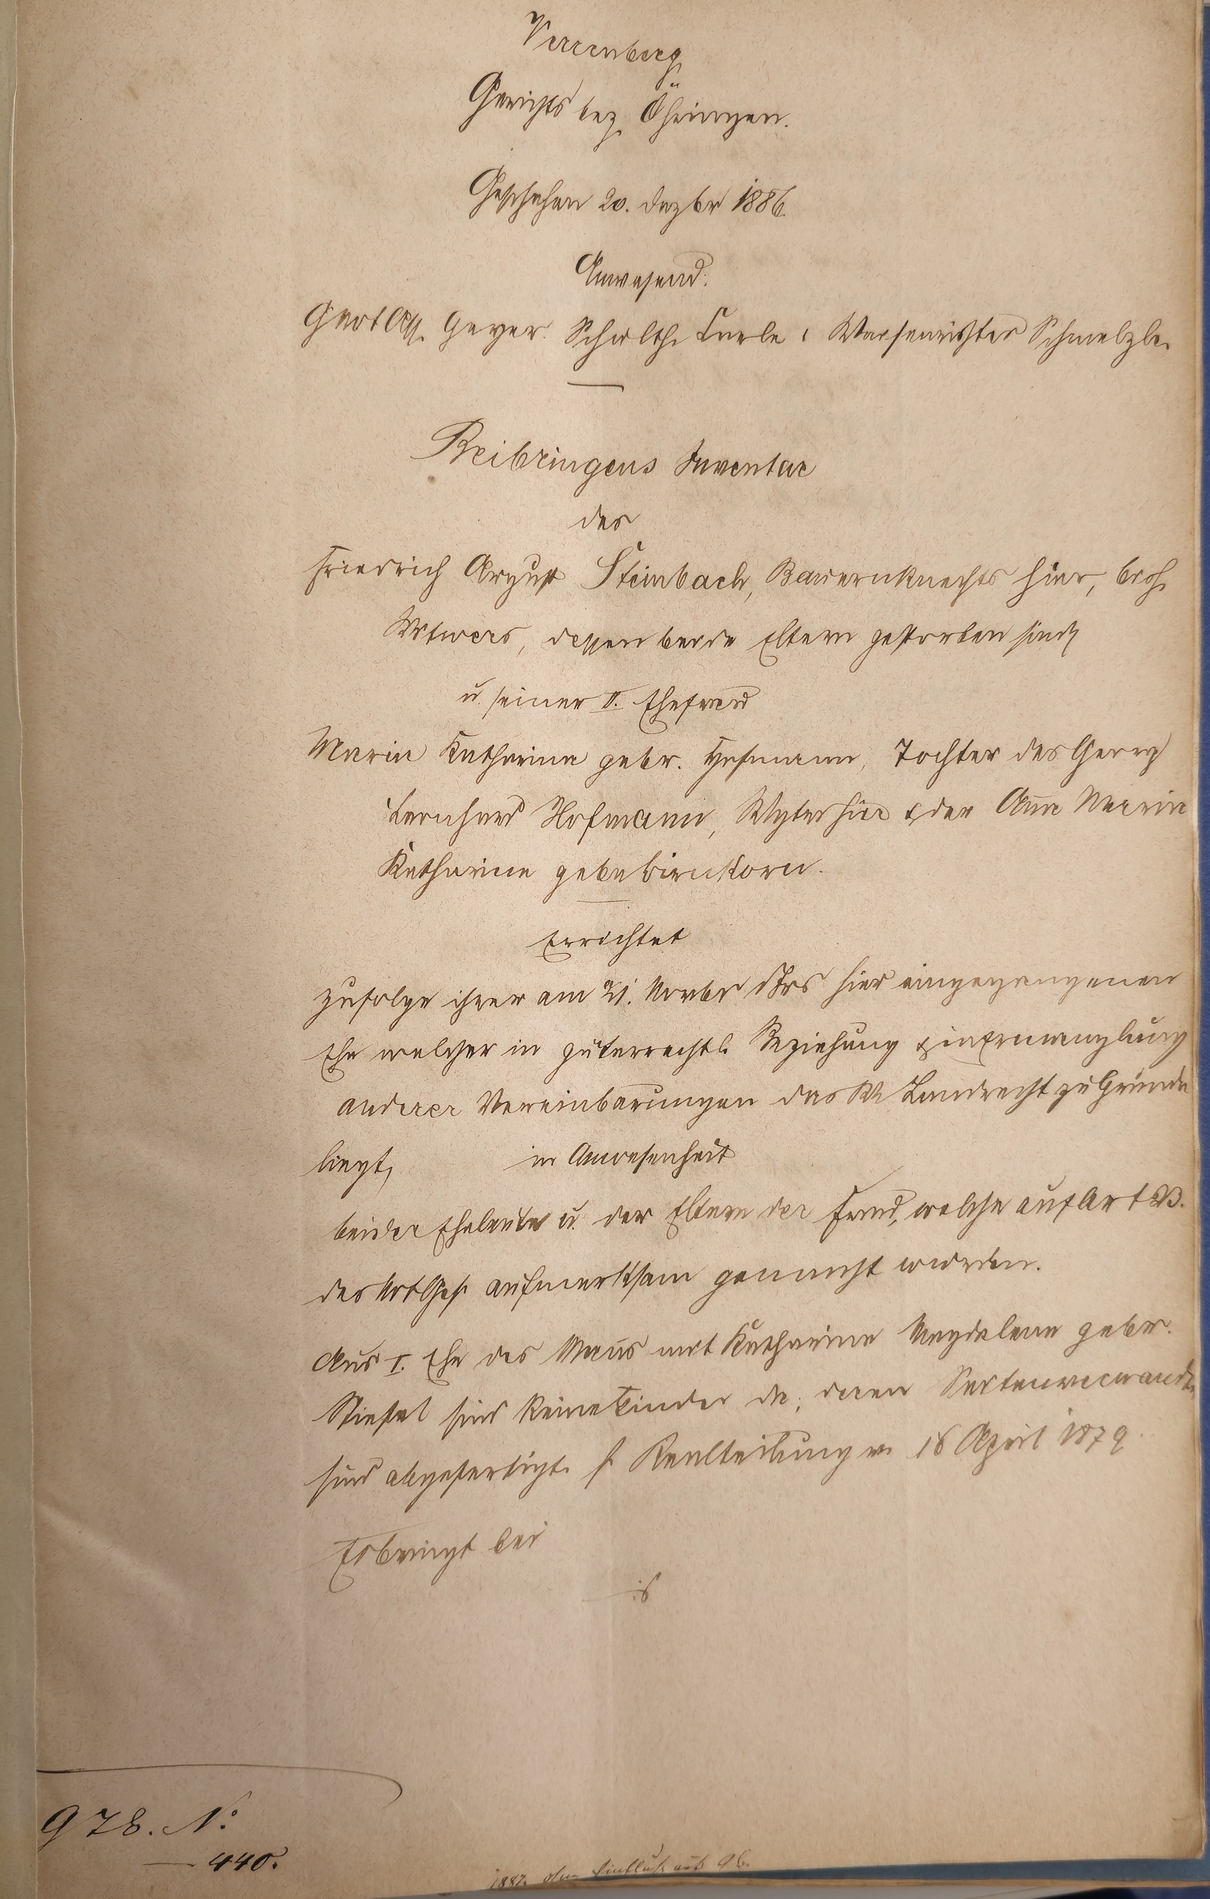 Verrenberg
Gerichts bez. Öhringen.
Geschehen 20. Dezbr 1886
Anwesend:
Geyer. Schulth. u. Waisenrichter Schmelzle.
Beibringens Inventar
des
Friedrich August Steinbach, Bauernknechts hier,
Witwers, dessen beide Eltern gestorben sind,
u. seiner II. Ehefrau
Maria Katharina gebr. Hofmann, Tochter des Georg
Leonhard Hofmann, hier & der Anna Maria
Katharine gebr. Birnkorn.
Errichtet
zufolge ihrer am 21. Novbr d Jrs hier eingegangenen
Ehe welcher in güterrechtl. Beziehung & in Ermanglung
anderer Vereinbarungen das W. Landrecht zu Grunde
liegt, in Anwesenheit
beider Eheleute u. der Eltern der Frau, welche auf Art
des aufmerksam gemacht wurden.
Aus I. Ehe des Manns mit Katharine Magdalene gebr.
Stiefel sind keine Kinder da; deren Seitenverwandte
sind abgefertigt. s. Realteilung v. 16 April 1879.
Es bringt bei
978. N:
440.
1887.